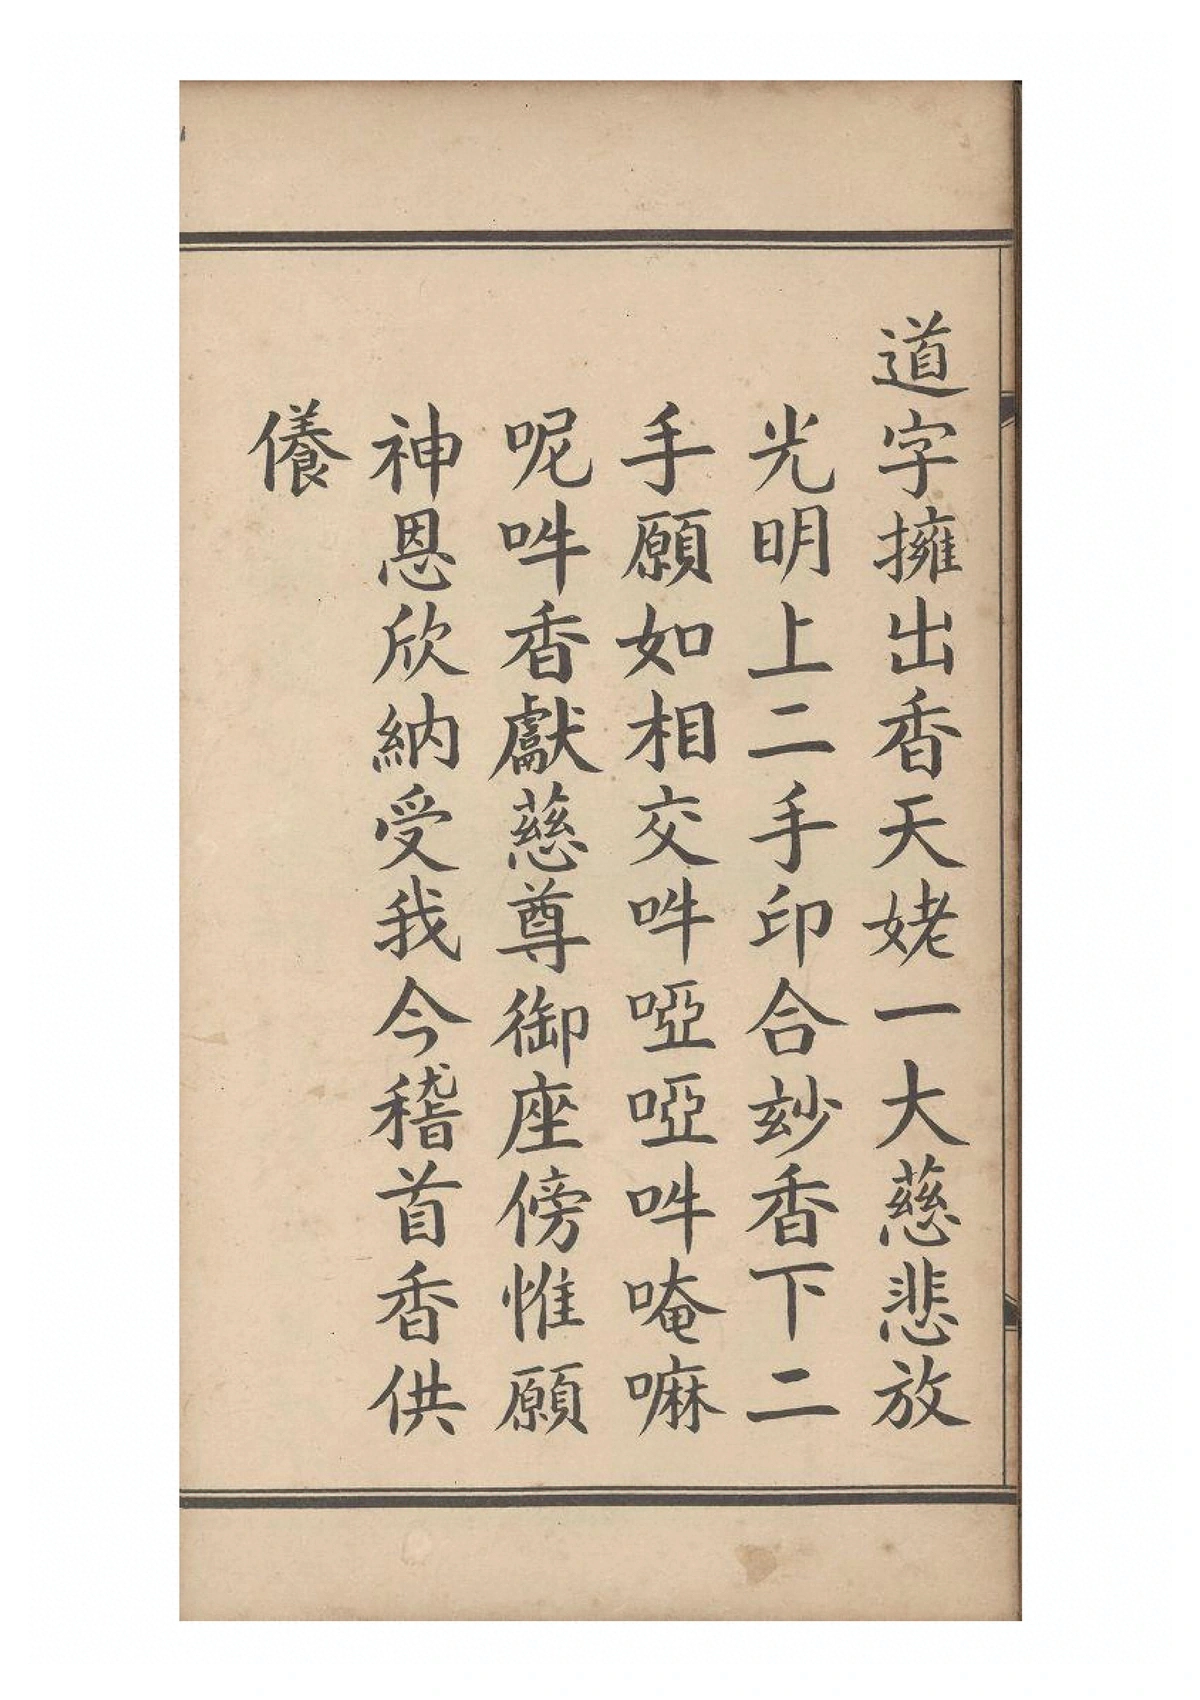 道字擁出香天姥一大慈悲放
光明上二手印合玅香下二
手願如相交吽啞啞吽唵嘛
呢吽香獻慈尊御座傍惟願
神恩欣納受我今稽首香供
儀